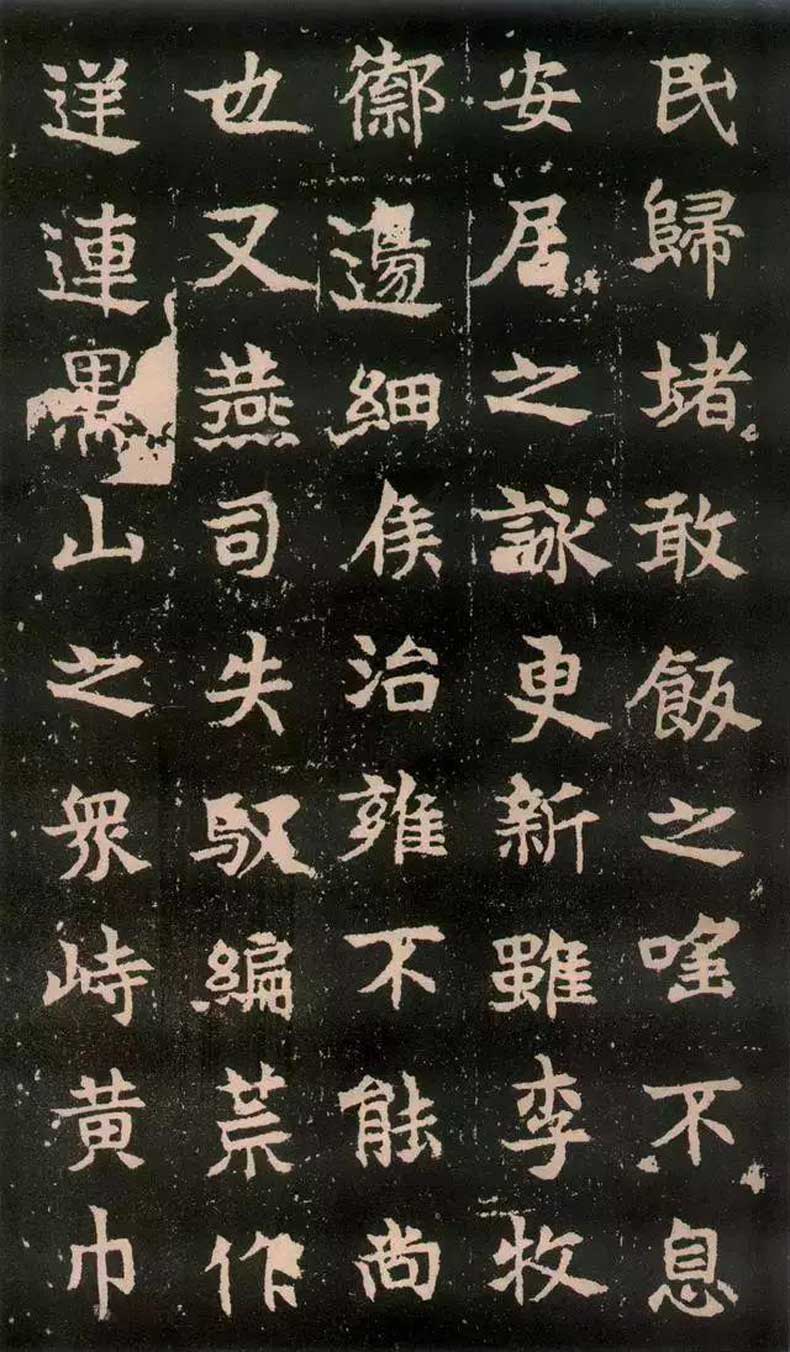 民歸堵敢飯之嗂不息
安居之詠更新雖李牧
禦邊細侯治雍不能尚
也又燕司失馭編荒作
逆連黑山之衆峙黃巾